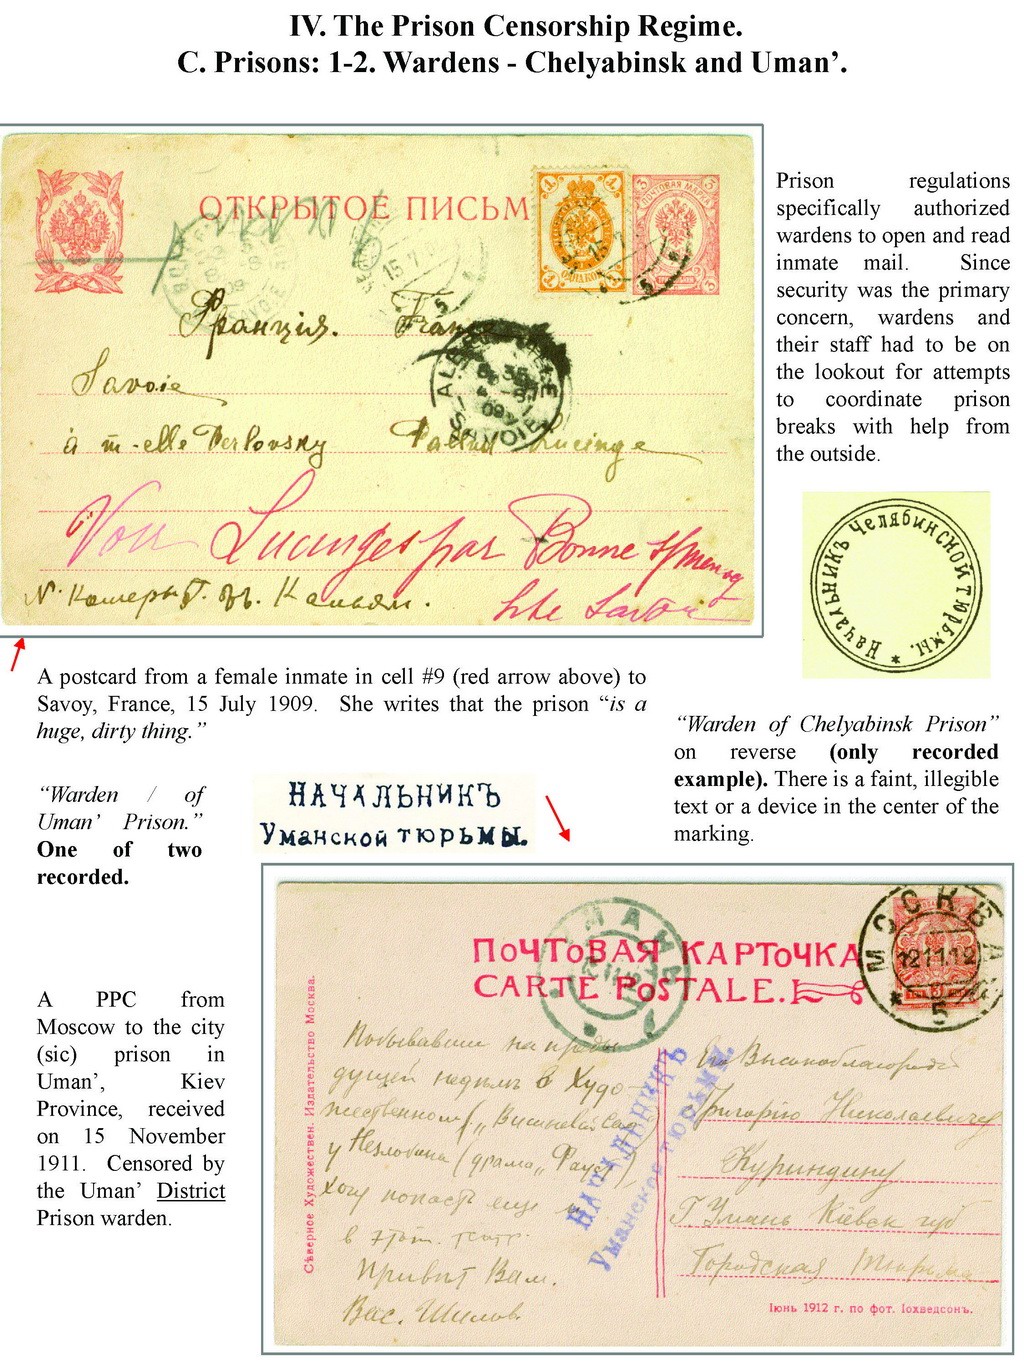 IV. The Prison Censorship Regime.
C. Prisons: 1-2. Wardens - Chelyabinsk and Uman’.
ОТКРЫТОЕ ПИСЬМ
ПОЧТОВАЯ МАРКА
15.7
5
Франція. France
Savoie
à m-elle Perlovsky
Lucinge
Voir Lucinges par Bonne
Hte Savoie
№ Камеры 9.
Prison regulations
specifically authorized
wardens to open and read
inmate mail. Since
security was the primary
concern, wardens and
their staff had to be on
the lookout for attempts
to coordinate prison
breaks with help from
the outside.
Начальникъ Челябинской тюрьмы.
A postcard from a female inmate in cell #9 (red arrow above) to
Savoy, France, 15 July 1909. She writes that the prison “is a
huge, dirty thing.”
“Warden of Chelyabinsk Prison”
on reverse (only recorded
example). There is a faint, illegible
text or a device in the center of the
marking.
“Warden / of
Uman’ Prison.”
One of two
recorded.
НАЧАЛЬНИКЪ
Уманской тюрьмы.
A PPC from
Moscow to the city
(sic) prison in
Uman’, Kiev
Province, received
on 15 November
1911. Censored by
the Uman’ District
Prison warden.
ПОЧТОВАЯ КАРТОЧКА
CARTE POSTALE.
МОСКВА
12 11 12
5
УМАНЬ
Сѣверное Художествен. Издательство Москва.
Побывавши на преды
дущей недѣлѣ в Худо-
жественном („Вишневый Сад“)
у Незлобина (драма „Фауст“)
хочу попасть еще
в этот театр.
Привѣт Вам.
Вас. Шилов
НАЧАЛЬНИКЪ
Уманской тюрьмы.
Его Высокоблагородію
Григорію Николаевичу
Куриндину
Г. Умань Кіевск. губ
Городская Тюрьма
Іюнь 1912 г. по фот. Іохведсонъ.